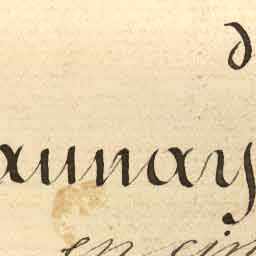 d
aunay
en cin